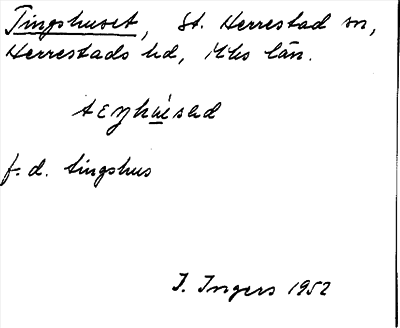 Tingshuset, St. Herrestad sn,
Herrestads hd, Mhs län.
f.d. tingshus
I. Ingers 1952